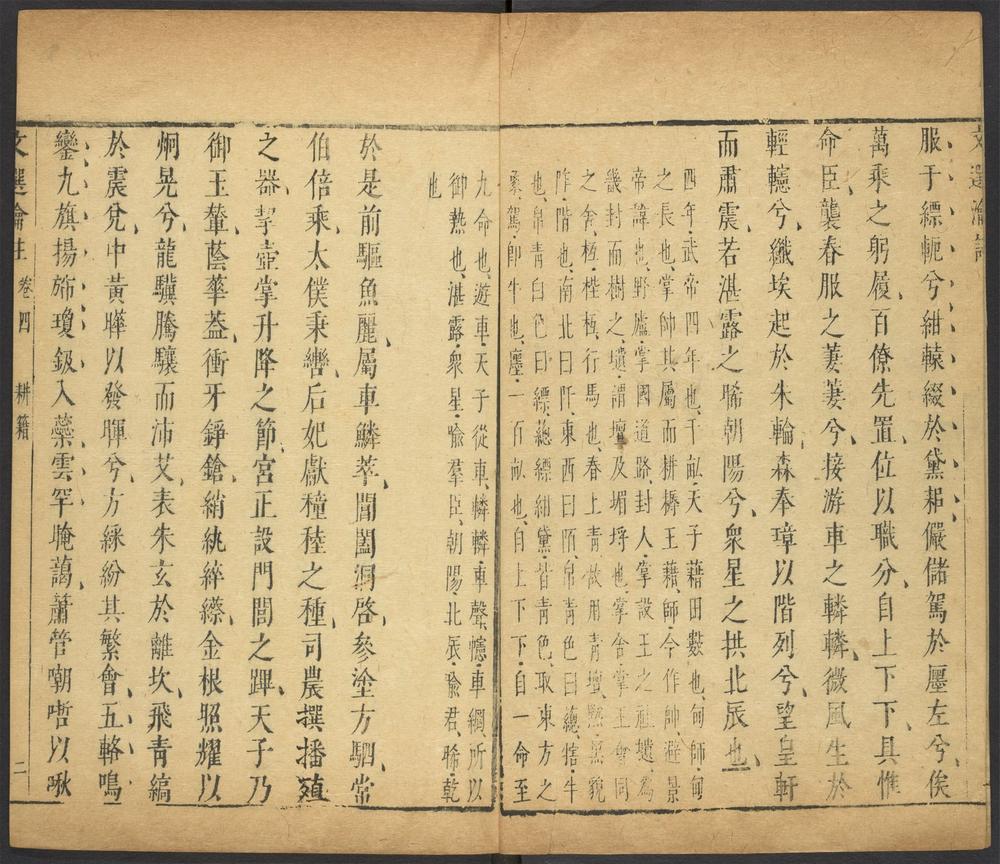 服于縹軛兮紺轅綴於黛耜儼儲駕於廛左兮俟
萬乘之躬履百僚先置位以職分自上下下具惟
命臣襲春服之萋萋兮接游車之轔轔微風生於
輕幰兮纖埃起於朱輪森奉璋以階列兮望皇軒
而肅震若湛露之晞朝陽兮衆星之拱北辰也
四年武帝四年也千畝天子藉田數也甸師甸
之長也掌帥其屬而耕耨王藉師今作帥避景
帝諱也野廬掌國道路封人掌設王之社壝為
畿封而樹之壝謂壇及堳埒也掌舍掌王會同
之舍梐枑行馬也春上青故用青壇黕黑貌
阼階也南北曰阡東西曰陌帛青色曰總犗牛
也帛青白色曰縹總縹紺黛皆青色取東方之
駕即牛也廛一百畝也自上下下自一命至
九命也遊車天子從車轔轔車聲幰車網所以
御熱也湛露衆星喻羣臣朝陽北辰喻君晞乾
也
於是前驅魚麗屬車鱗萃閶闔洞啓參塗方駟常
伯倍乘太僕秉轡后妃獻穜稑之種司農撰播殖
之器挈壺掌升降之節宮正設門閭之蹕天子乃
御玉輦蔭華蓋衝牙錚鎗綃紈綷縩金根照耀以
炯晃兮龍驥騰驤而沛艾表朱玄於離坎飛青縞
於震兌中黃曄以發暉兮方綵紛其繁會五輅鳴
鑾九旗揚斾瓊鈒入蘂雲罕晻藹簫管嘲哳以啾
文選瀹註 卷四 耕籍 二